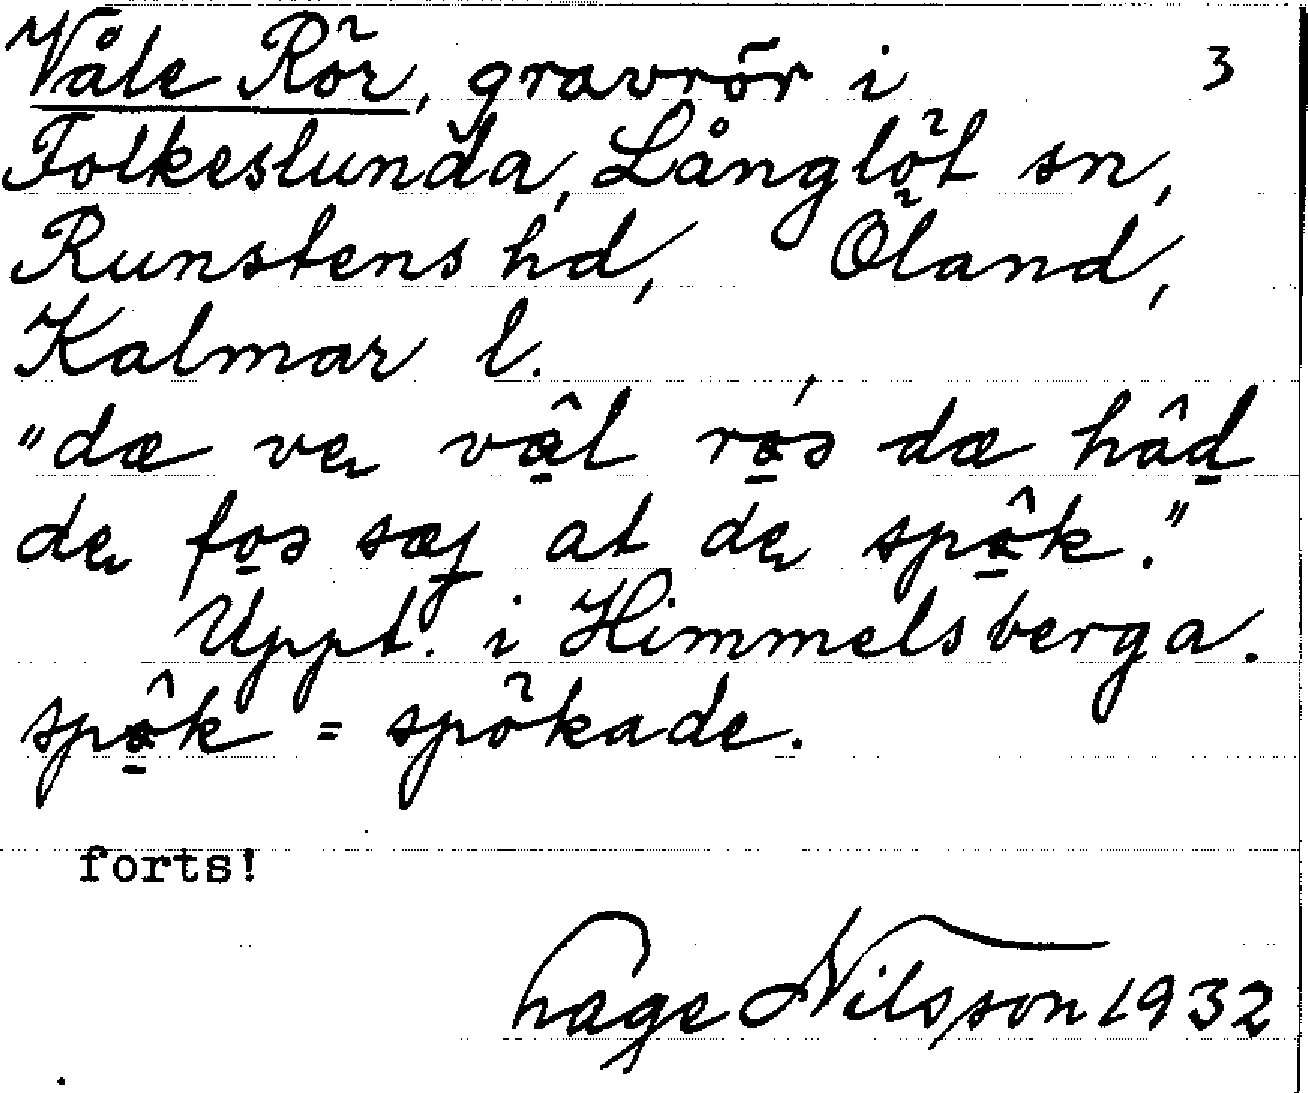 Våle Rör, gravrör i 3
Folkeslunda, Långlöt sn,
Runstens hd, Öland,
Kalmar l.
"dæ ve vâl rós dæ hâd
de fos sæj at de spôk."
Uppt. i Himmelsberga.
spôk = spökade.
forts!
Hage Nilsson 1932